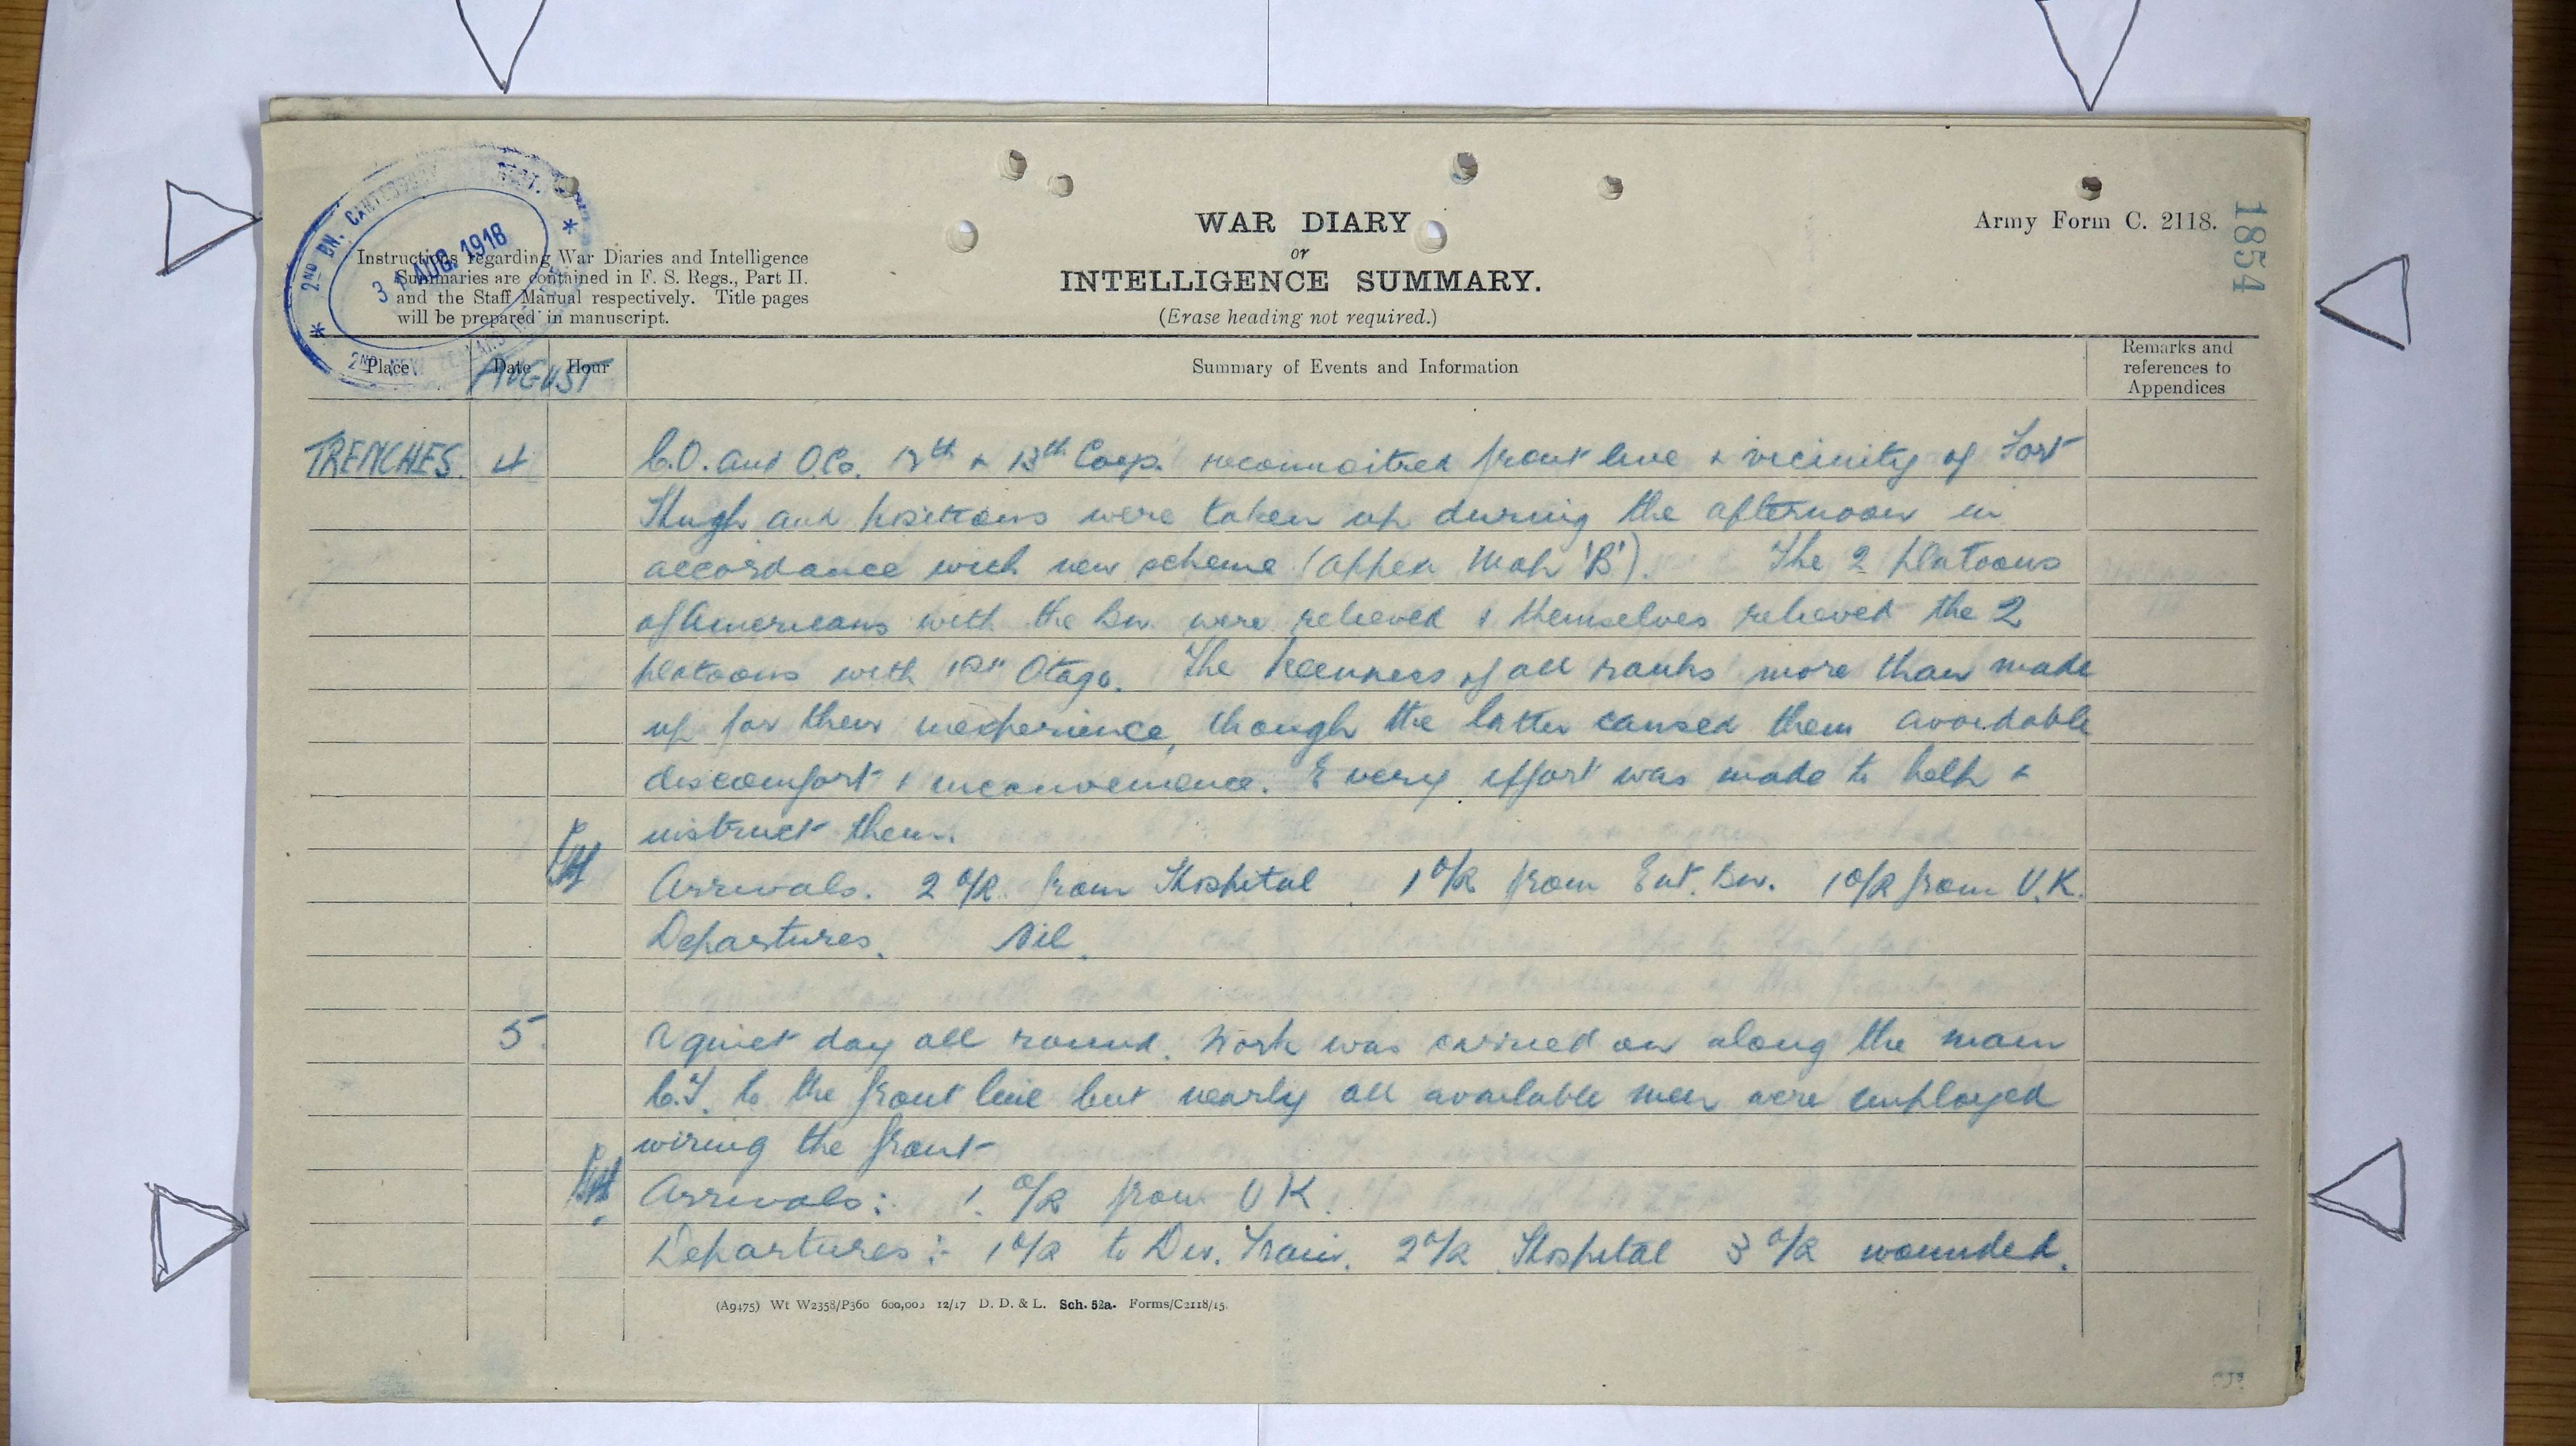 WAR DIARY
or
INTELLIGENCE SUMMARY.
(Erase heading not required.)
Army Form C. 2118.
1854
2ND BN. CANTERBURY REGT.
31 AUG. 1918
2ND NEW ZEALAND
Instructions regarding War Diaries and Intelligence
Summaries are contained in F. S. Regs., Part II.
and the Staff Manual respectively. Title pages
will be prepared in manuscript.
Place Date Hour Summary of Events and Information Remarks and
references to
Appendices
AUGUST
TRENCHES. 4 C.O. and O.Cs. 12th & 13th Coys. reconnoitred front line & vicinity of Fort
Hugh and positions were taken up during the afternoon in
accordance with new scheme (appen Map 'B'). The 2 platoons
of Americans with the Bn. were relieved & themselves relieved the 2
platoons with 1st Otago. The keenness of all ranks more than made
up for their inexperience, though the latter caused them avoidable
discomfort & inconvenience. Every effort was made to help &
instruct them.
Arrivals. 2 O/R. from Hospital 1 O/R from Ent. Bn. 1 O/R from U.K.
Departures. Nil.
5. A quiet day all round. Work was carried on along the main
C.T. to the front line but nearly all available men were employed
wiring the front
Arrivals: 1. O/R from U K.
Departures:- 1 O/R to Div. Train. 2 O/R Hospital 3 O/R wounded.
(A9475) Wt W2358/P360 600,000 12/17 D. D. & L. Sch. 52a. Forms/C2118/15.